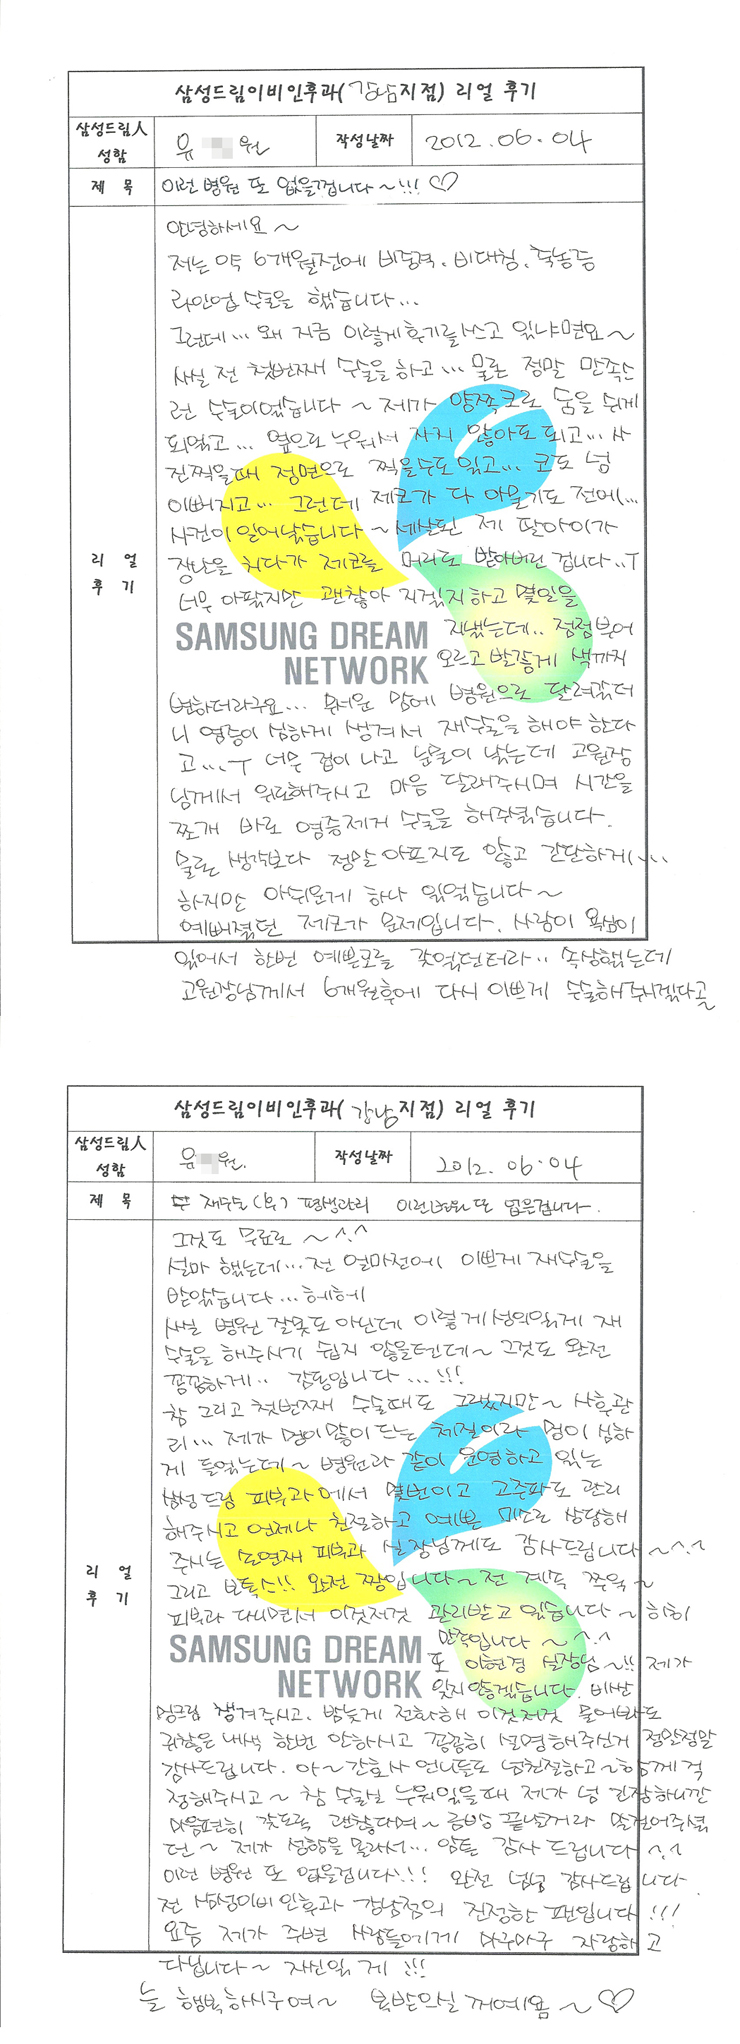 삼성드림이비인후과(강남지점) 리얼 후기
삼성드림人 성함
유 원
작성날짜
2012.06.04
제 목
이런 병원 또 없을껍니다~!!! ♡
리 얼 후 기
안녕하세요~
저는 약 6개월전에 비중격, 비대칭, 축농증
라인업 수술을 했습니다...
그런데... 왜 지금 이렇게 후기를 쓰고 있냐면요~
사실 전 첫번째 수술을 하고... 물론 정말 만족스
런 수술이였습니다~ 제가 양쪽코로 숨을 쉬게
되었고... 옆으로 누워서 자지 않아도 되고... 사
진찍을때 정면으로 찍을수도 있고... 코도 넘
이뻐지고... 그런데 제코가 다 아물기도 전에...
사건이 일어났습니다~ 세살된 제 딸아이가
장난을 치다가 제코를 머리로 받아버린 겁니다..T
너무 아팠지만 괜찮아 지겠지하고 몇일을
지냈는데.. 점점 부어
오르고 빨갛게 색까지
SAMSUNG DREAM
NETWORK
변하더라구요... 무서운 맘에 병원으로 달려갔더
니 염증이 심하게 생겨서 재수술을 해야 한다
고...ㅜ 너무 겁이 나고 눈물이 났는데 고원장
님께서 위로해주시고 마음 달래주시며 시간을
쪼개 바로 염증제거 수술을 해주셨습니다.
물론 생각보다 정말 아프지도 않고 간단하게...
하지만 아쉬운게 하나 있었습니다~
예뻐졌던 제코가 문제입니다. 사람이 욕심이
있어서 한번 예쁜코를 갖었던터라.. 속상했는데
고원장님께서 6개월후에 다시 이쁘게 수술해주시겠다고
삼성드림이비인후과(강남지점) 리얼 후기
삼성드림人 성함
유 원.
작성날짜
2012.06.04
제 목
재수술(코) 평생관리 이런병원 또 없을겁니다.
리 얼 후 기
그것도 무료로~^.^
설마 했는데... 전 얼마전에 이쁘게 재수술을
받았습니다... 헤헤
사실 병원 잘못도 아닌데 이렇게 성의있게 재
수술을 해주시기 쉽지 않을텐데~ 그것도 완전
꼼꼼하게.. 감동입니다...!!!
참 그리고 첫번째 수술때도 그랬지만~ 사후관
리... 제가 멍이 많이 드는 체질이라 멍이 심하
게 들었는데~ 병원과 같이 운영하고 있는
삼성드림 피부과에서 몇번이고 고주파도 관리
해주시고 언제나 친절하고 예쁜 미소로 상담해
주시는 피부과 실장님께도 감사드립니다~^.^
그리고 보톡스!! 완전 짱입니다~ 전 계속 쭈욱~
피부과 다니면서 이것저것 관리받고 있습니다~ 히히
만족입니다~^.^
또 이현경 실장님~!! 제가
잊지 않겠습니다. 비싼
SAMSUNG DREAM
NETWORK
멍크림 챙겨주시고, 밤늦게 전화해 이것저것 물어봐도
귀찮은 내색 한번 안하시고 꼼꼼히 설명해주신거 정말정말
감사드립니다. 아~ 간호사 언니들도 넘친절하고~ 함께 걱
정해주시고~ 참 수술실 누워있을때 제가 넘 긴장하니깐
마음편히 갖도록 괜찮다며~ 금방 끝날거라 말걸어주셨
던~ 제가 성함을 몰라서... 암튼 감사 드립니다^.^
이런 병원 또 없을겁니다!!! 완전 넘넘 감사드립니다
전 삼성이비인후과 강남점의 진정한 팬입니다!!!
요즘 제가 주변 사람들에게 마구마구 자랑하고
다닙니다~ 자신있게!!!
늘 행복하시구여~ 복받으실꺼예욤~♡